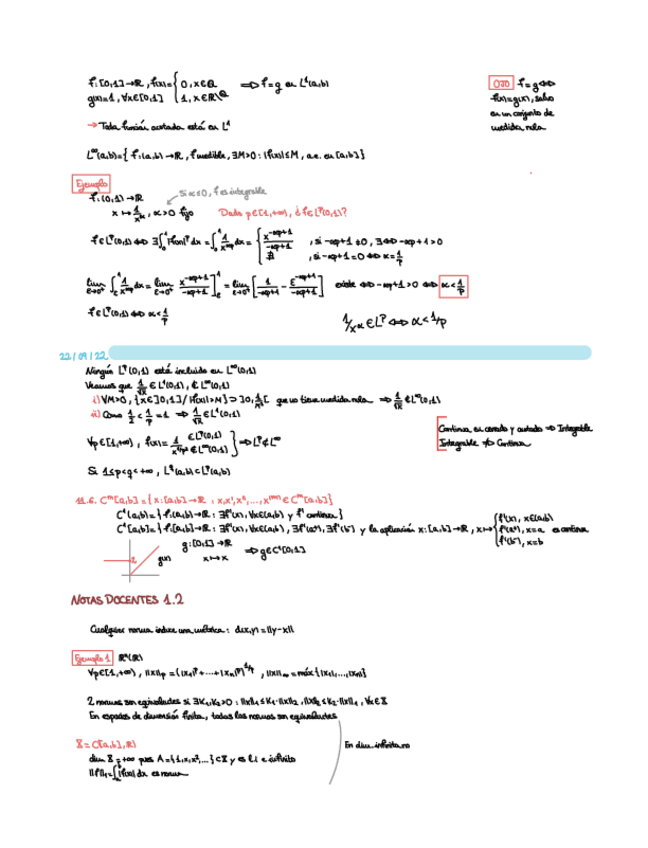 f:[0,1]→ℝ, f(x)={ 0, x∈ℚ ⇒ f=g en L¹(a,b)
g(x)=1, ∀x∈[0,1] 1, x∈ℝ\ℚ
OJO f=g⇔
f(x)=g(x), salvo
en un conjunto de
medida nula
→ Toda función acotada está en L¹
L^∞(a,b)={ f:(a,b)→ℝ, f medible, ∃M>0: |f(x)|≤M, a.e. en [a,b] }
Ejemplo
Si α≤0, f es integrable
f:(0,1)→ℝ
x↦1/x^α, α>0 fijo Dado p∈[1,+∞), ¿f∈L^p(0,1)?
f∈L^p(0,1) ⇔ ∃∫₀¹|f(x)|^p dx = ∫₀¹ 1/x^{αp} dx = { x^{-αp+1}/(-αp+1), si -αp+1≠0, ∃⇔ -αp+1>0
∄, si -αp+1=0 ⇔ α=1/p
lim_{ε→0⁺} ∫_ε¹ 1/x^{αp} dx = lim_{ε→0⁺} x^{-αp+1}/(-αp+1) ]_ε¹ = lim_{ε→0⁺} [ 1/(-αp+1) - ε^{-αp+1}/(-αp+1) ] existe ⇔ -αp+1>0 ⇔ α<1/p
f∈L^p(0,1) ⇔ α<1/p
1/x^α ∈ L^p ⇔ α<1/p
22/09/22
Ningún L^p(0,1) está incluido en L^∞(0,1)
Veamos que 1/√x ∈ L¹(0,1), ∉ L^∞(0,1)
i) ∀M>0, {x∈]0,1[ / |f(x)|>M} ⊃ ]0,1/M²[ que no tiene medida nula ⇒ 1/√x ∉ L^∞(0,1)
ii) Como 1/2<1/p=1 ⇒ 1/√x ∈ L¹(0,1)
Continua en cerrado y acotado ⇒ Integrable
Integrable ⇏ Continua
∀p∈[1,+∞), f(x)=1/x^{1/2p} ∈L^p(0,1) ∉L^∞(0,1) } ⇒ L^p⊄L^∞
Si 1≤p<q<+∞, L^q(a,b)⊂L^p(a,b)
11.6. C^m[a,b]={x:[a,b]→ℝ : x,x',x'',...,x^{(m)}∈C^m[a,b]}
C¹(a,b)={f:(a,b)→ℝ: ∃f'(x), ∀x∈(a,b) y f' continua}
C¹[a,b]={f:[a,b]→ℝ: ∃f'(x), ∀x∈(a,b), ∃f'(a⁺), ∃f'(b⁻) y la aplicación x:[a,b]→ℝ, x↦{ f'(x), x∈(a,b)
f'(a⁺), x=a es continua
f'(b⁻), x=b
g:[0,1]→ℝ ⇒ g∈C¹[0,1]
g(x) x↦x
NOTAS DOCENTES 1.2
Cualquier norma induce una métrica: d(x,y)=||y-x||
Ejemplo 1 ℝⁿ(ℝ)
∀p∈[1,+∞), ||x||_p=(|x₁|^p+...+|xₙ|^p)^{1/p}, ||x||_∞=máx{|x₁|,...,|xₙ|}
2 normas son equivalentes si ∃K₁,K₂>0: ||x||₁≤K₁·||x||₂, ||x||₂≤K₂·||x||₁, ∀x∈X
En espacios de dimensión finita, todas las normas son equivalentes
X=C([a,b],ℝ)
En dim. infinita no
dim X=+∞ pues A={1,x,x²,...}⊂X y es l.i e infinito
||f||₁=∫|f(x)|dx es norma